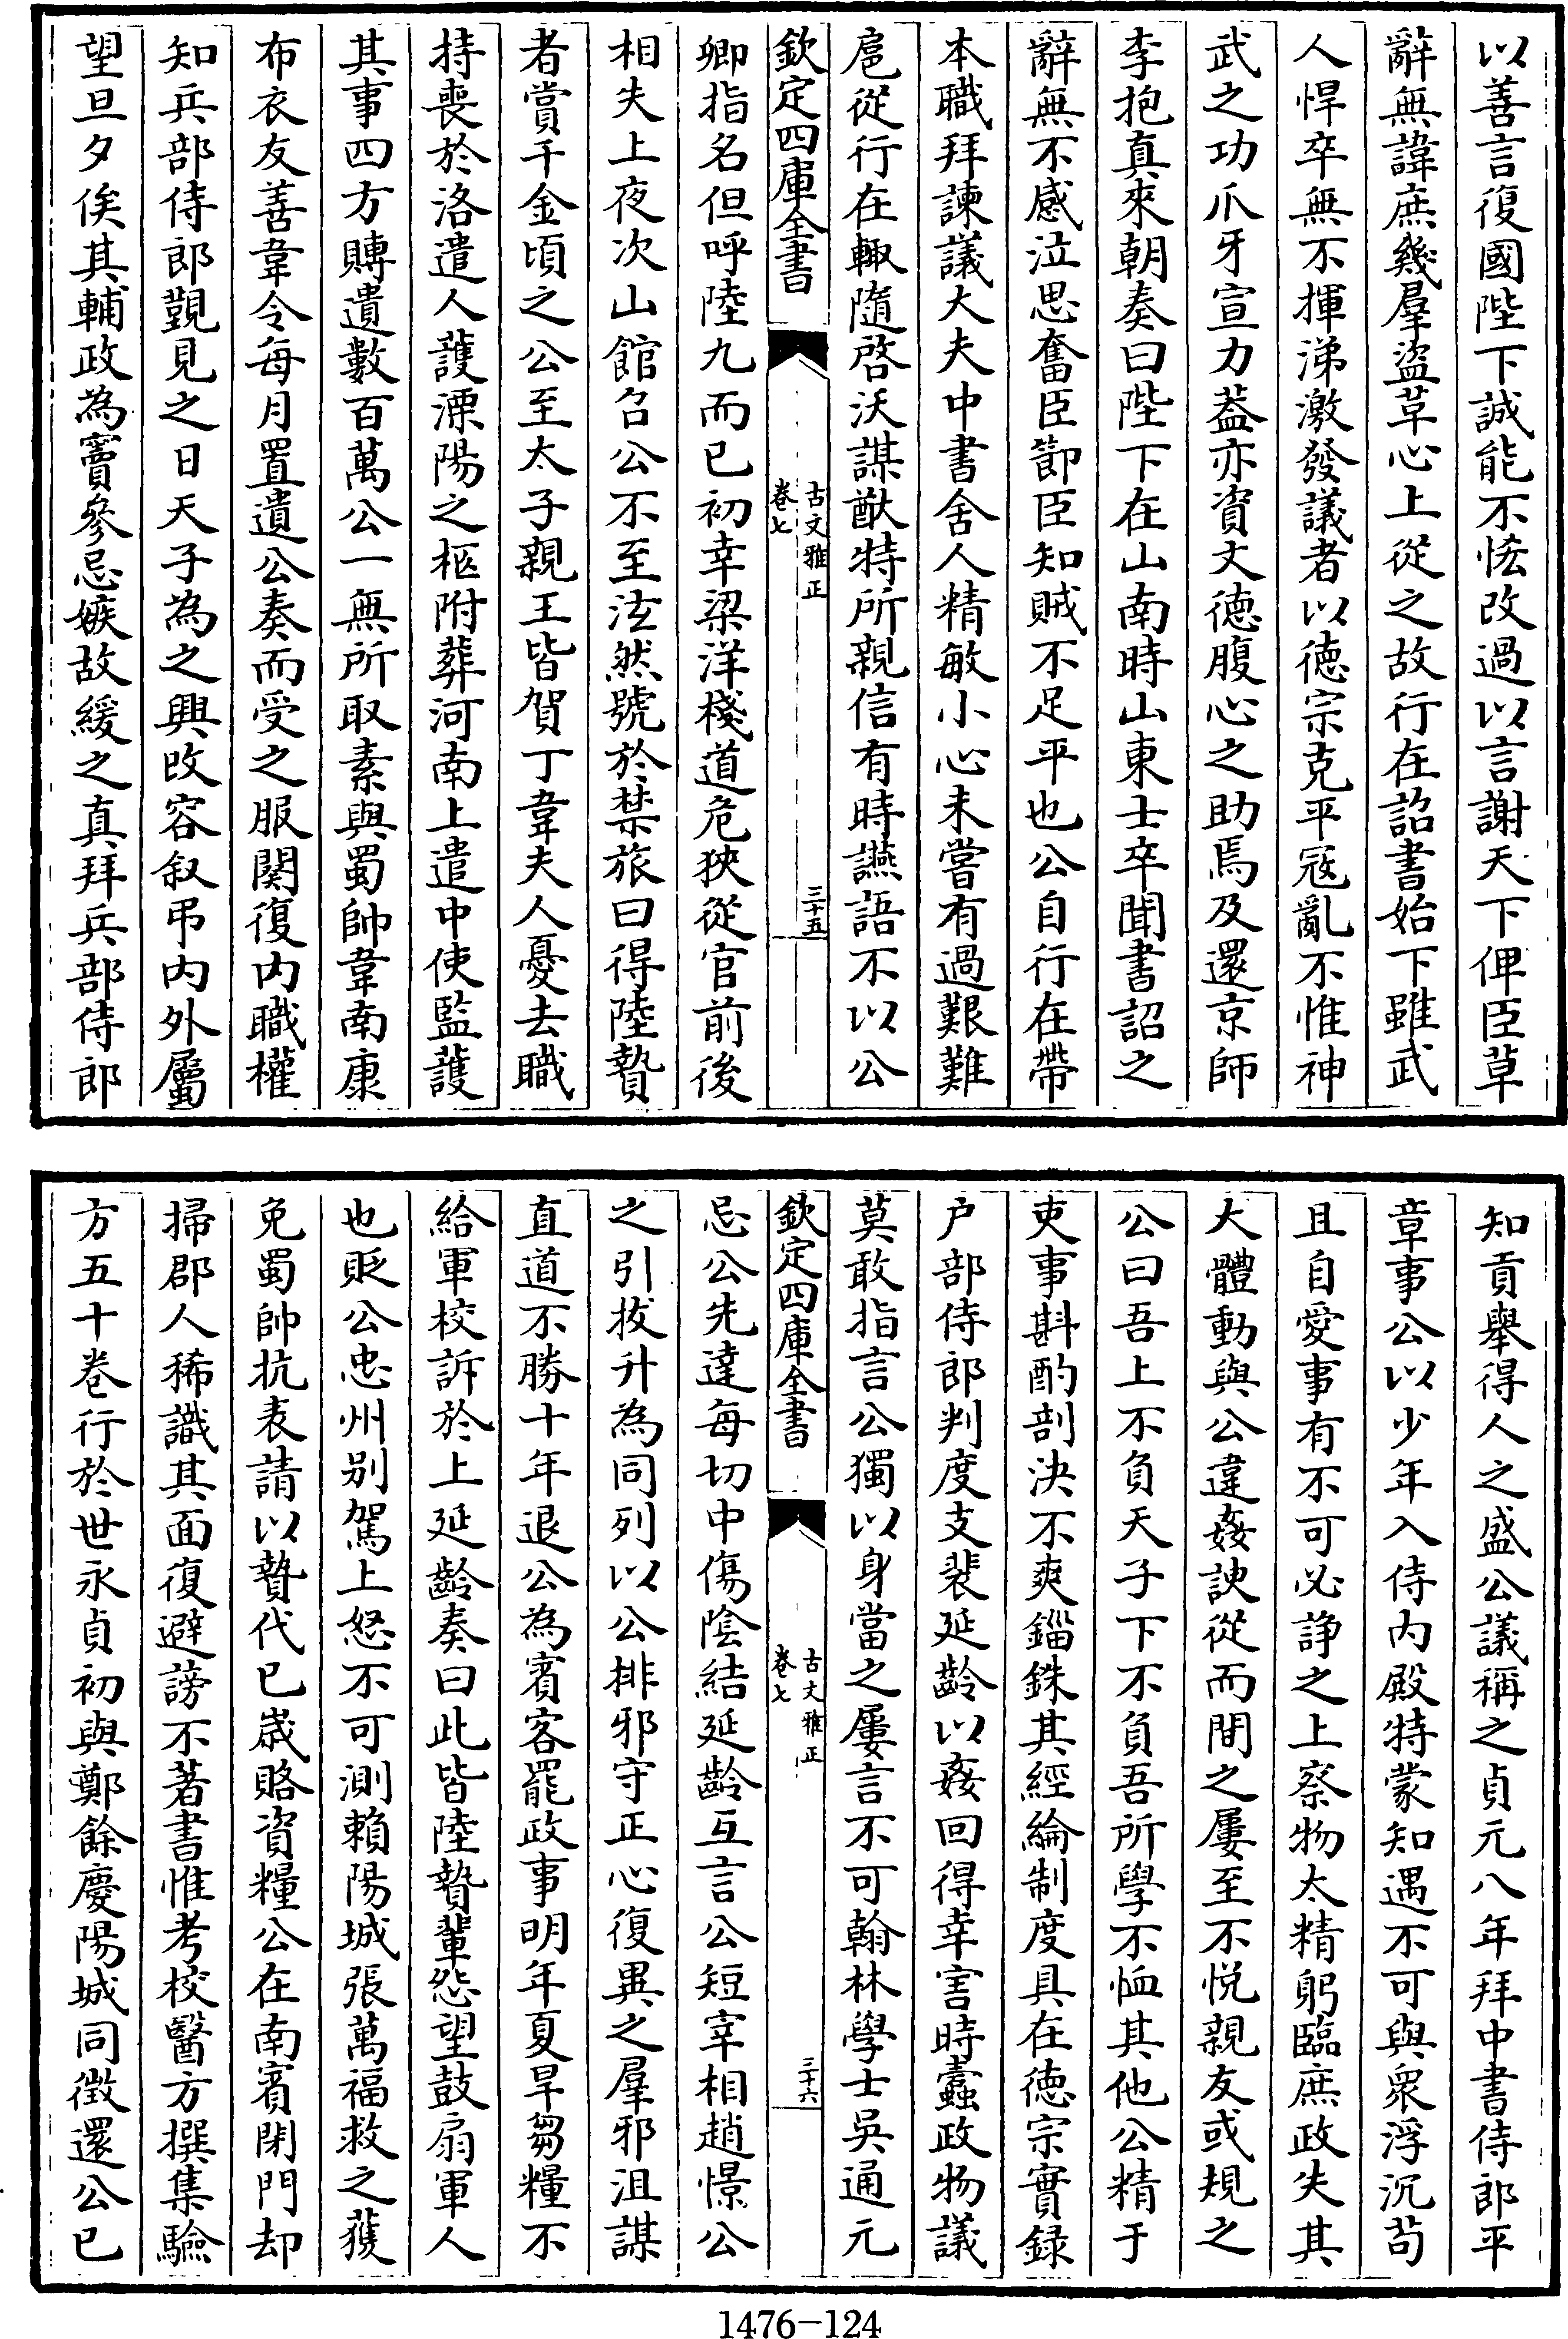 以善言復國陛下誠能不恡改過以言謝天下俾臣草
辭無諱庶幾羣盜革心上從之故行在詔書始下雖武
人悍卒無不揮涕激發議者以徳宗克平寇亂不惟神
武之功爪牙宣力葢亦資文徳腹心之助焉及還京師
李抱真來朝奏曰陛下在山南時山東士卒聞書詔之
辭無不感泣思奮臣節臣知賊不足平也公自行在帶
本職拜諫議大夫中書舍人精敏小心未嘗有過艱難
扈從行在輙隨啓沃謀猷特所親信有時讌語不以公
欽定四庫全書
古文雅正
卷七
三十五
卿指名但呼陸九而已初幸梁洋棧道危狹從官前後
相失上夜次山館召公不至泫然號於禁旅曰得陸贄
者賞千金頃之公至太子親王皆賀丁韋夫人憂去職
持喪於洛遣人護溧陽之柩附葬河南上遣中使監護
其事四方賻遺數百萬公一無所取素與蜀帥韋南康
布衣友善韋令每月置遺公奏而受之服闋復内職權
知兵部侍郎覲見之日天子為之興改容叙弔内外屬
望旦夕俟其輔政為竇參忌嫉故緩之真拜兵部侍郎
知貢舉得人之盛公議稱之貞元八年拜中書侍郎平
章事公以少年入侍内殿特蒙知遇不可與衆浮沉苟
且自愛事有不可必諍之上察物太精躬臨庶政失其
大體動與公違姦諛從而間之屢至不悦親友或規之
公曰吾上不負天子下不負吾所學不恤其他公精于
吏事斟酌剖決不爽錙銖其經綸制度具在徳宗實録
户部侍郎判度支裴延齡以姦回得幸害時蠹政物議
莫敢指言公獨以身當之屢言不可翰林學士吳通元
欽定四庫全書
古文雅正
卷七
三十六
忌公先達每切中傷陰結延齡互言公短宰相趙憬公
之引拔升為同列以公排邪守正心復異之羣邪沮謀
直道不勝十年退公為賓客罷政事明年夏旱芻糧不
給軍校訴於上延齡奏曰此皆陸贄輩怨望鼓扇軍人
也貶公忠州别駕上怒不可測賴陽城張萬福救之獲
免蜀帥抗表請以贄代已嵗賂資糧公在南賓閉門却
掃郡人稀識其面復避謗不著書惟考校醫方撰集驗
方五十卷行於世永貞初與鄭餘慶陽城同徴還公已
1476-124